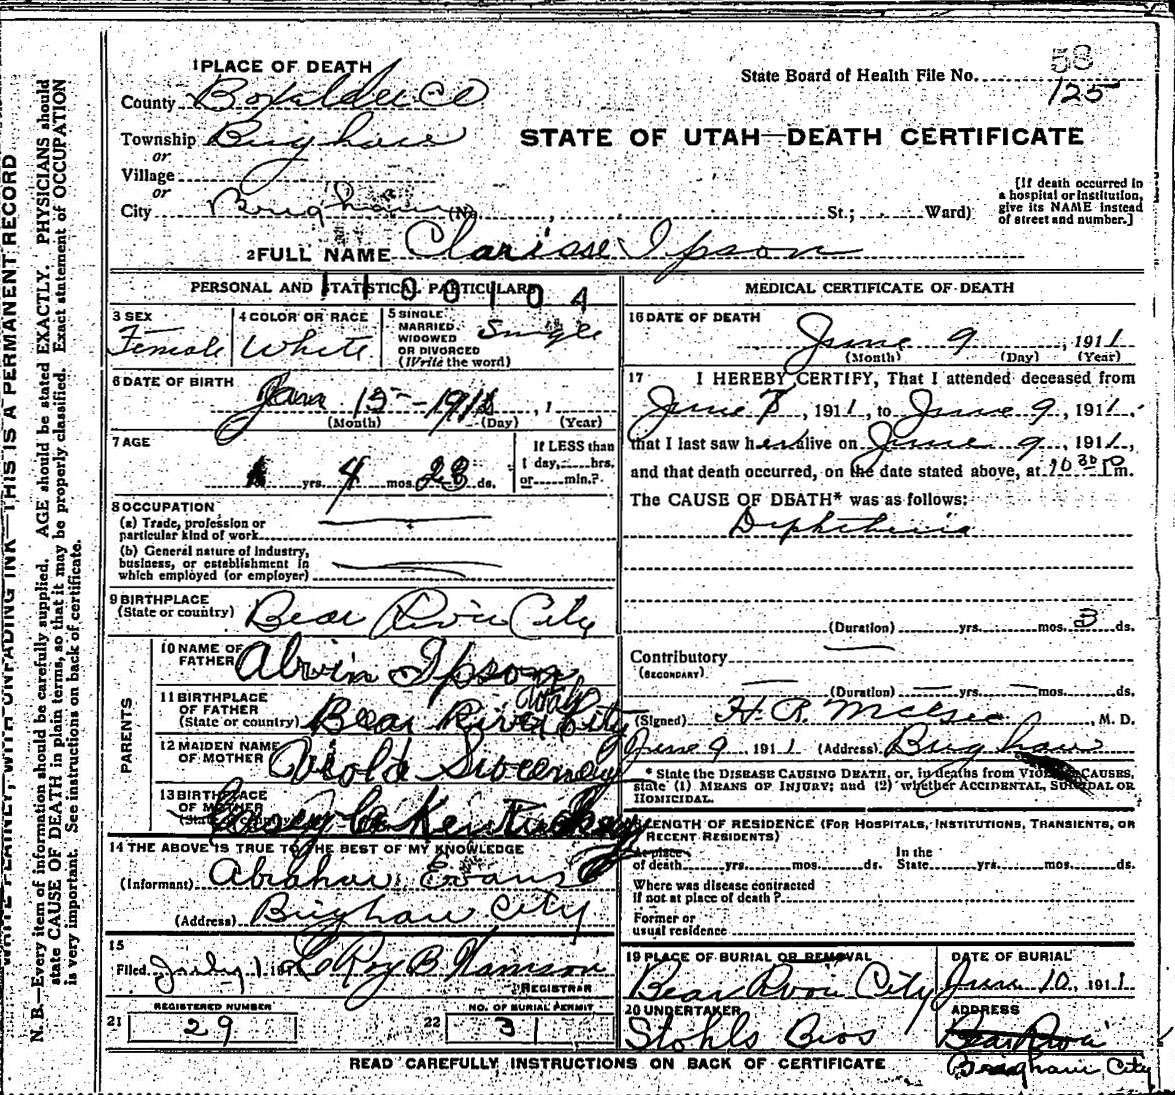 1 PLACE OF DEATH
State Board of Health File No. 58
125
County Boxelder Co
Township Brigham
STATE OF UTAH—DEATH CERTIFICATE
or
Village
or
City Brigham (No. , St.; Ward)
[If death occurred in a hospital or institution, give its NAME instead of street and number.]
2 FULL NAME Clarisse Ipson
PERSONAL AND STATISTICAL PARTICULARS
1100104
3 SEX Female
4 COLOR OR RACE White
5 SINGLE MARRIED, WIDOWED OR DIVORCED (Write the word) Single
6 DATE OF BIRTH Jan 15 - 1911, 1
(Month) (Day) (Year)
7 AGE
yrs. 4 mos. 23 ds.
If LESS than 1 day, hrs. or min.?
8 OCCUPATION
(a) Trade, profession or particular kind of work
(b) General nature of industry, business, or establishment in which employed (or employer)
9 BIRTHPLACE (State or country) Bear River City
PARENTS
10 NAME OF FATHER Alvin Ipson
11 BIRTHPLACE OF FATHER (State or country) Bear River City Utah
12 MAIDEN NAME OF MOTHER Viola Sweeney
13 BIRTHPLACE OF MOTHER (State or country) Casey Co Kentucky
14 THE ABOVE IS TRUE TO THE BEST OF MY KNOWLEDGE
(Informant) Abraham Evans
(Address) Brigham City
15
Filed July 1 191
REGISTRAR
REGISTERED NUMBER
21 29
NO. OF BURIAL PERMIT
22 31
MEDICAL CERTIFICATE OF DEATH
16 DATE OF DEATH
June 9, 1911
(Month) (Day) (Year)
17 I HEREBY CERTIFY, That I attended deceased from
June 7, 1911, to June 9, 1911,
that I last saw her alive on June 9, 1911,
and that death occurred, on the date stated above, at 10 30 Pm.
The CAUSE OF DEATH* was as follows:
Diphtheria
(Duration) yrs. mos. 3 ds.
Contributory
(SECONDARY)
(Duration) yrs. mos. ds.
(Signed) H. R. McGee, M. D.
June 9 1911 (Address) Brigham
* State the DISEASE CAUSING DEATH, or, in deaths from VIOLENT CAUSES, state (1) MEANS OF INJURY; and (2) whether ACCIDENTAL, SUICIDAL OR HOMICIDAL.
LENGTH OF RESIDENCE (FOR HOSPITALS, INSTITUTIONS, TRANSIENTS, OR RECENT RESIDENTS)
At place of death yrs. mos. ds. In the State yrs. mos. ds.
Where was disease contracted
if not at place of death?
Former or
usual residence
19 PLACE OF BURIAL OR REMOVAL
Bear River City
DATE OF BURIAL
June 10, 1911
20 UNDERTAKER
Stohls Bros
ADDRESS
Bear River
Brigham City
READ CAREFULLY INSTRUCTIONS ON BACK OF CERTIFICATE
WRITE PLAINLY, WITH UNFADING INK—THIS IS A PERMANENT RECORD
N. B.—Every item of information should be carefully supplied. AGE should be stated EXACTLY. PHYSICIANS should
state CAUSE OF DEATH in plain terms, so that it may be properly classified. Exact statement of OCCUPATION
is very important. See instructions on back of certificate.